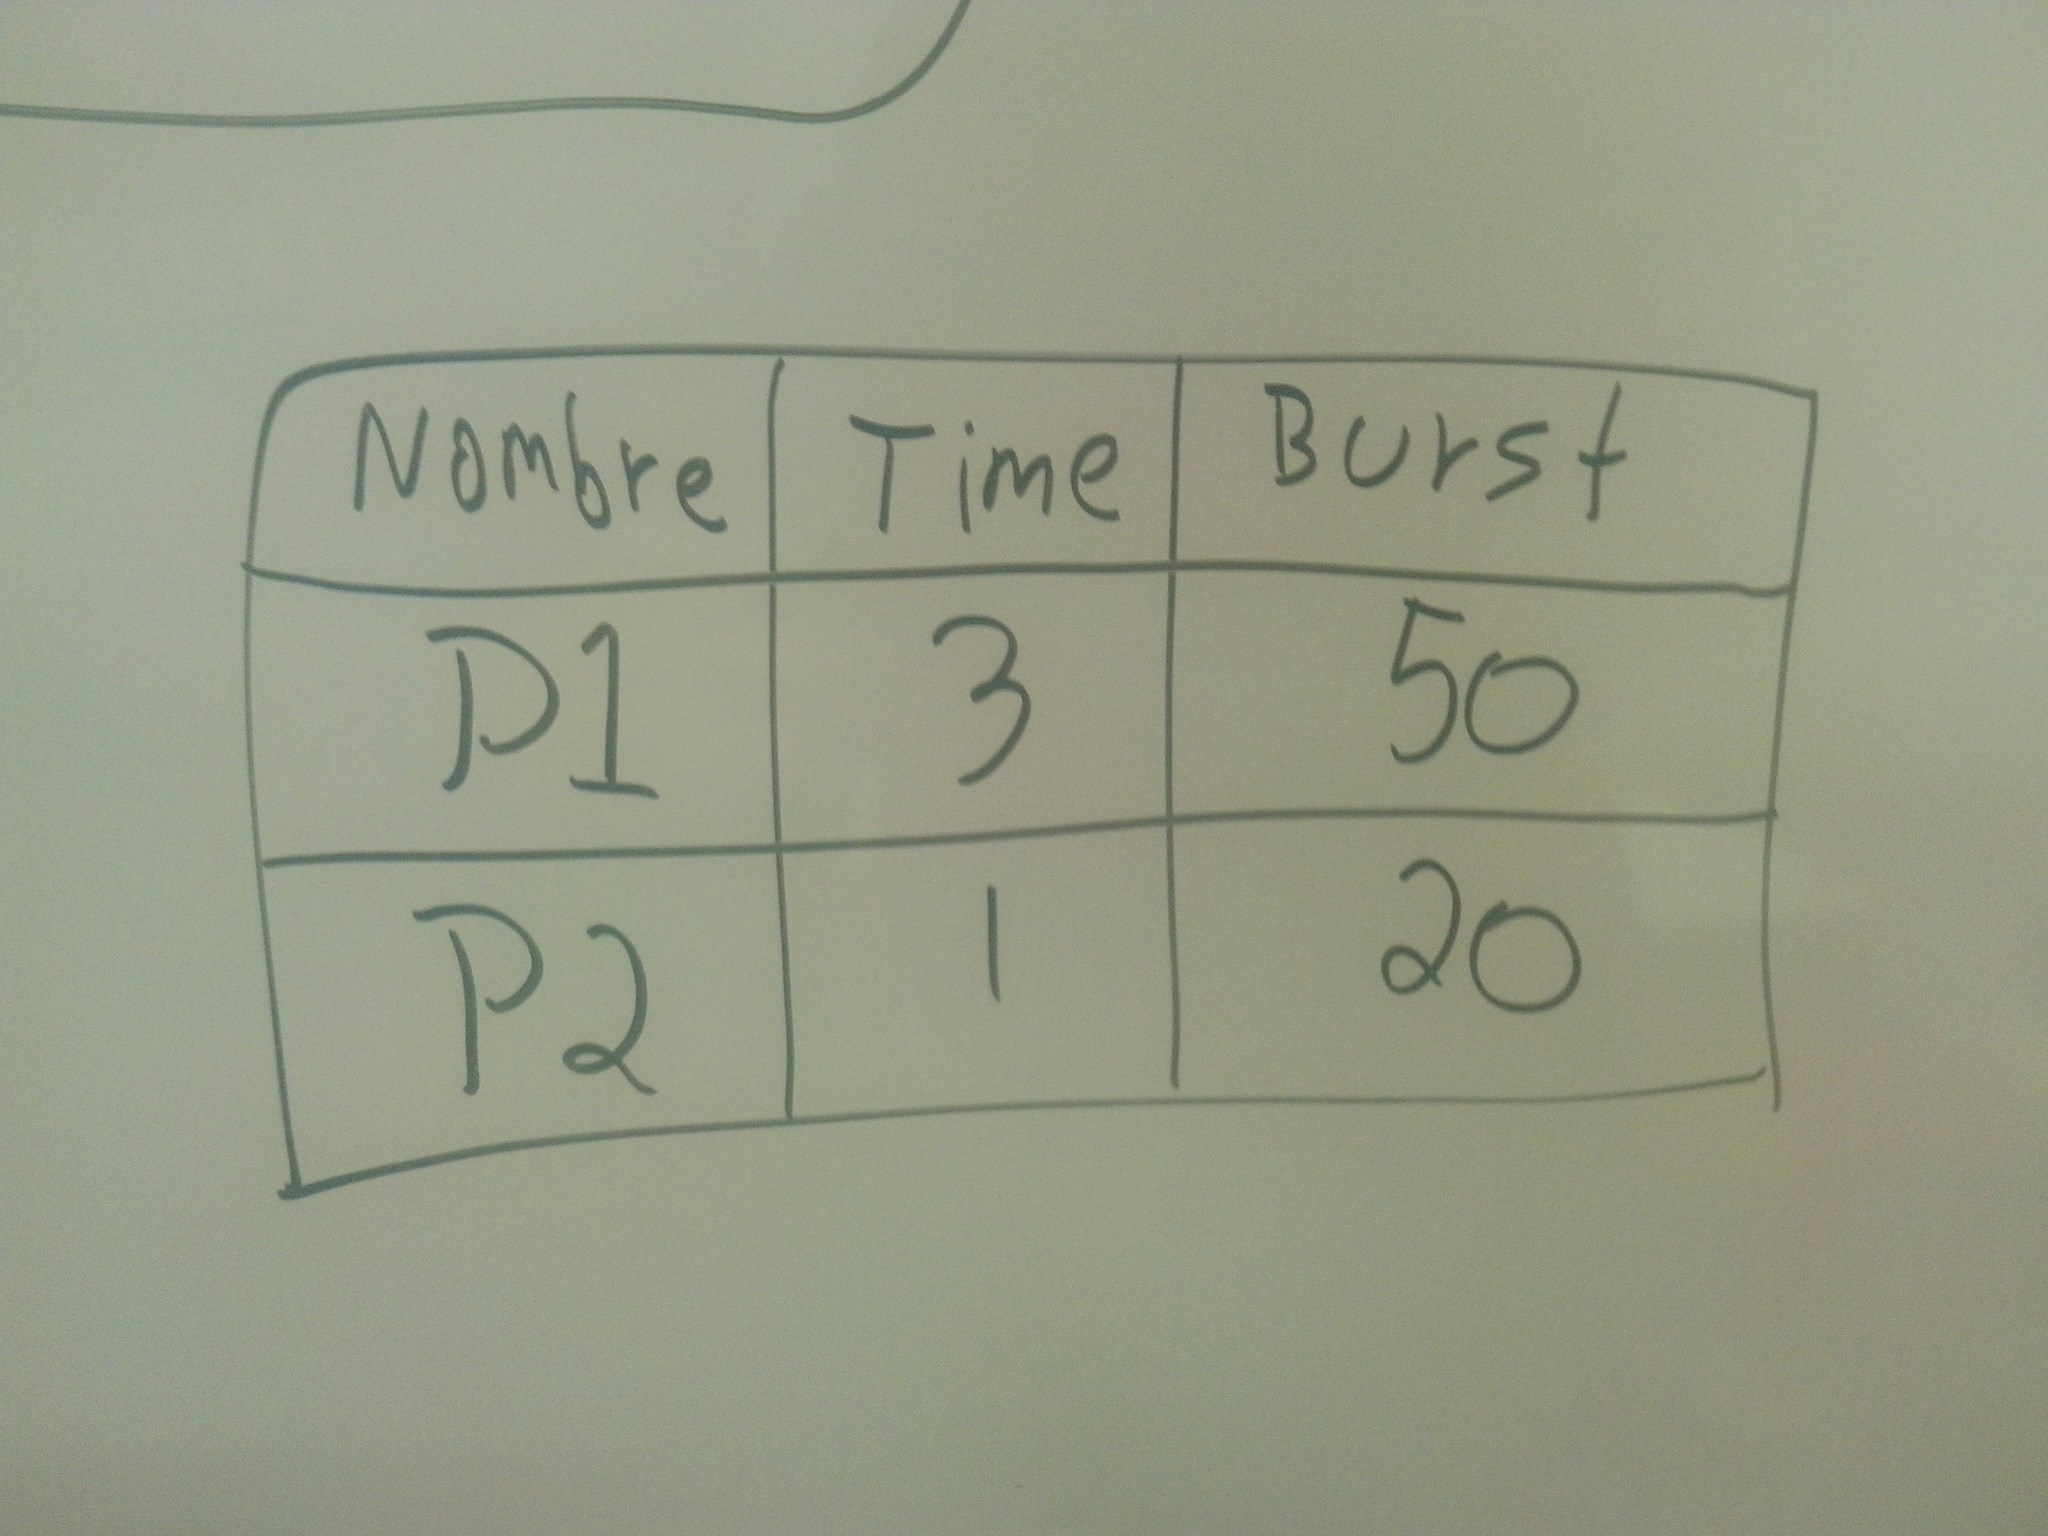 Nombre Time Burst
P1 3 50
P2 1 20